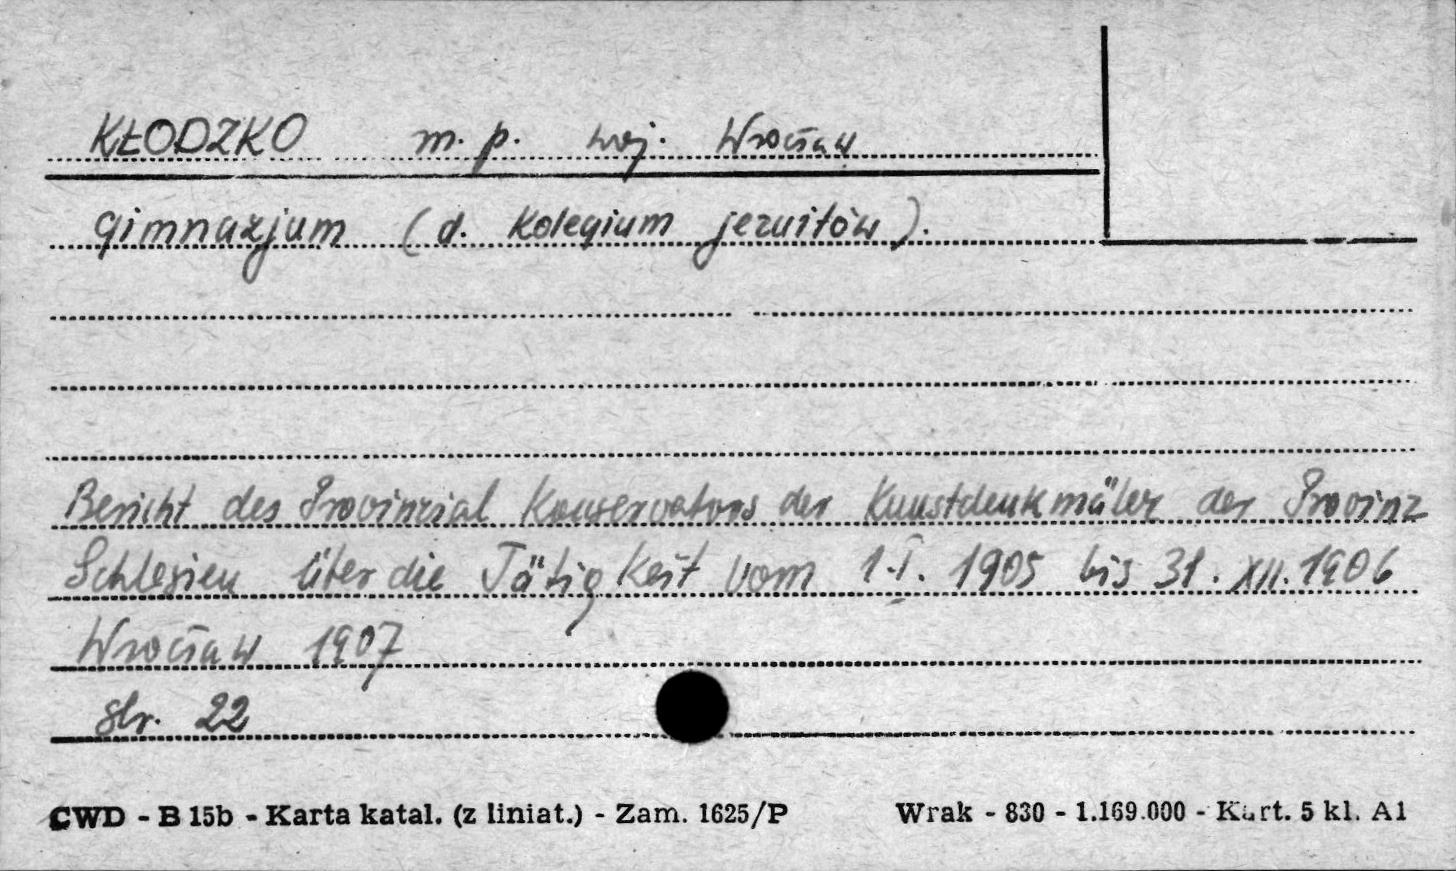 KŁODZKO m.p. woj. Wrocław
gimnazjum (d. kolegium jezuitów).
Bericht des Provinzial Konservators der Kunstdenkmäler der Provinz
Schlesien über die Tätigkeit vom 1.I. 1905 bis 31. XII. 1906
Wrocław 1907
str. 22
CWD - B 15b - Karta katal. (z liniat.) - Zam. 1625/P Wrak - 830 - 1.169.000 - Kart. 5 kl. A1